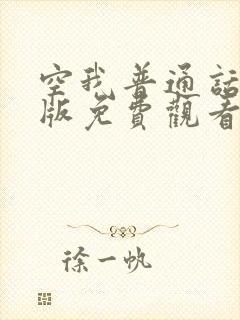 空我普通話
版免費觀看
徐一帆